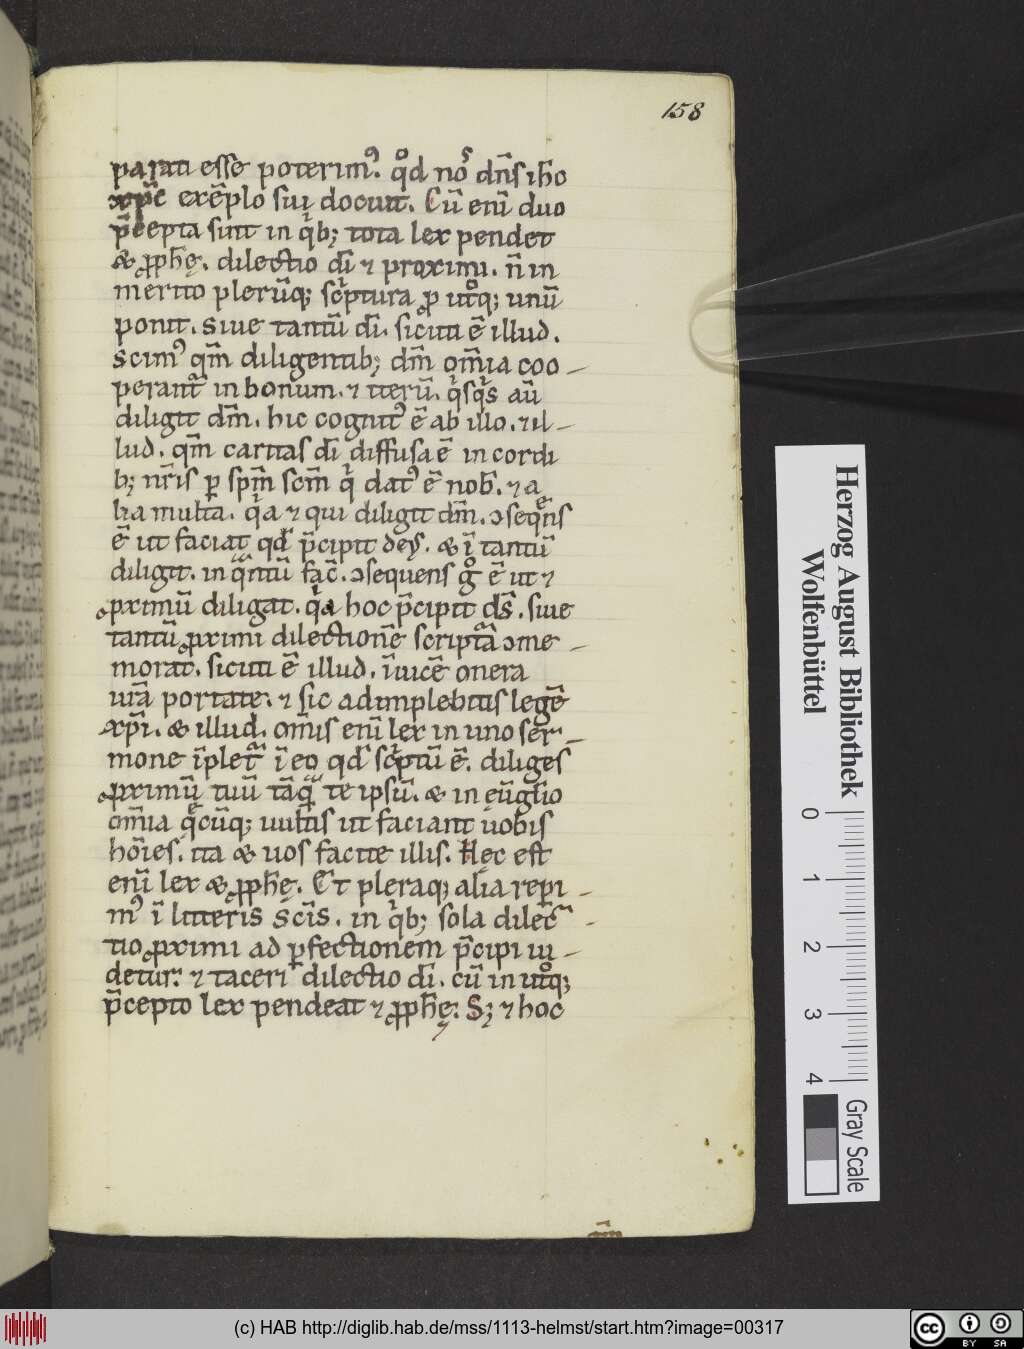 158
parati esse poterim᷒. qͦd noᷤ dn̄s ih̄c
xp̄c exēplo sui docuit. Cū enī duo
p̄cepta sunt in qͥb; tota lex pendet
& ꝓph̄ę. dilectio dī ⁊ proximi. n̄ in
merito plerūq; scͥptura ꝓ utͦq; unū
ponit. Siue tantū dī. sicuti ē illud.
Scim᷒ qm̄ diligentib; dm̄ om̄ia coo-
perant᷑ in bonum. ⁊ iterū. qͥsqͥs aū
diligit dm̄. hic cognit᷒ ē ab illo. ⁊ il-
lud. qm̄ caritas dī diffusa ē in cordi
b; nr̄is ꝑ spm̄ scm̄ qͥ dat᷒ ē nob̄. ⁊ a
lia multa. qͥa ⁊ qui diligit dm̄. ↄseqͤns
ē ut faciat qd̄ p̄cipit deꝰ. & ī tantū
diligit. in qᷓntū fac̄. ↄsequens gͦ ē ut ⁊
ꝓximū diligat. qͥa hoc p̄cipit ds̄. siue
tantū ꝓximi dilectionē scriptᷓa ↄme-
morat. sicuti ē illud. īuicē onera
ur̄a portate. ⁊ sic adimplebitis legē
xp̄i. & illud. om̄is enī lex in uno ser-
mone īplet᷑ ī eo qd̄ scͥptū ē. diliges
ꝓximū tuū tāqᷓ te ipsū. & in eūglio
om̄ia qͤcūq; uultis ut faciant uobis
hōies. ita & uos facite illis. Hęc est
enī lex & ꝓph̄ę. Et pleraq; alia reperi-
m᷒ ī litteris scīs. in qͥb; sola dilec̄-
tio ꝓximi ad ꝑfectionem p̄cipi ui-
detur. ⁊ taceri dilectio dī. cū in utͦq;
p̄cepto lex pendeat ⁊ ꝓph̄ę. S; ⁊ hoc
Herzog August Bibliothek
Wolfenbüttel
0 1 2 3 4
Gray Scale
(c) HAB http://diglib.hab.de/mss/1113-helmst/start.htm?image=00317
cc BY SA